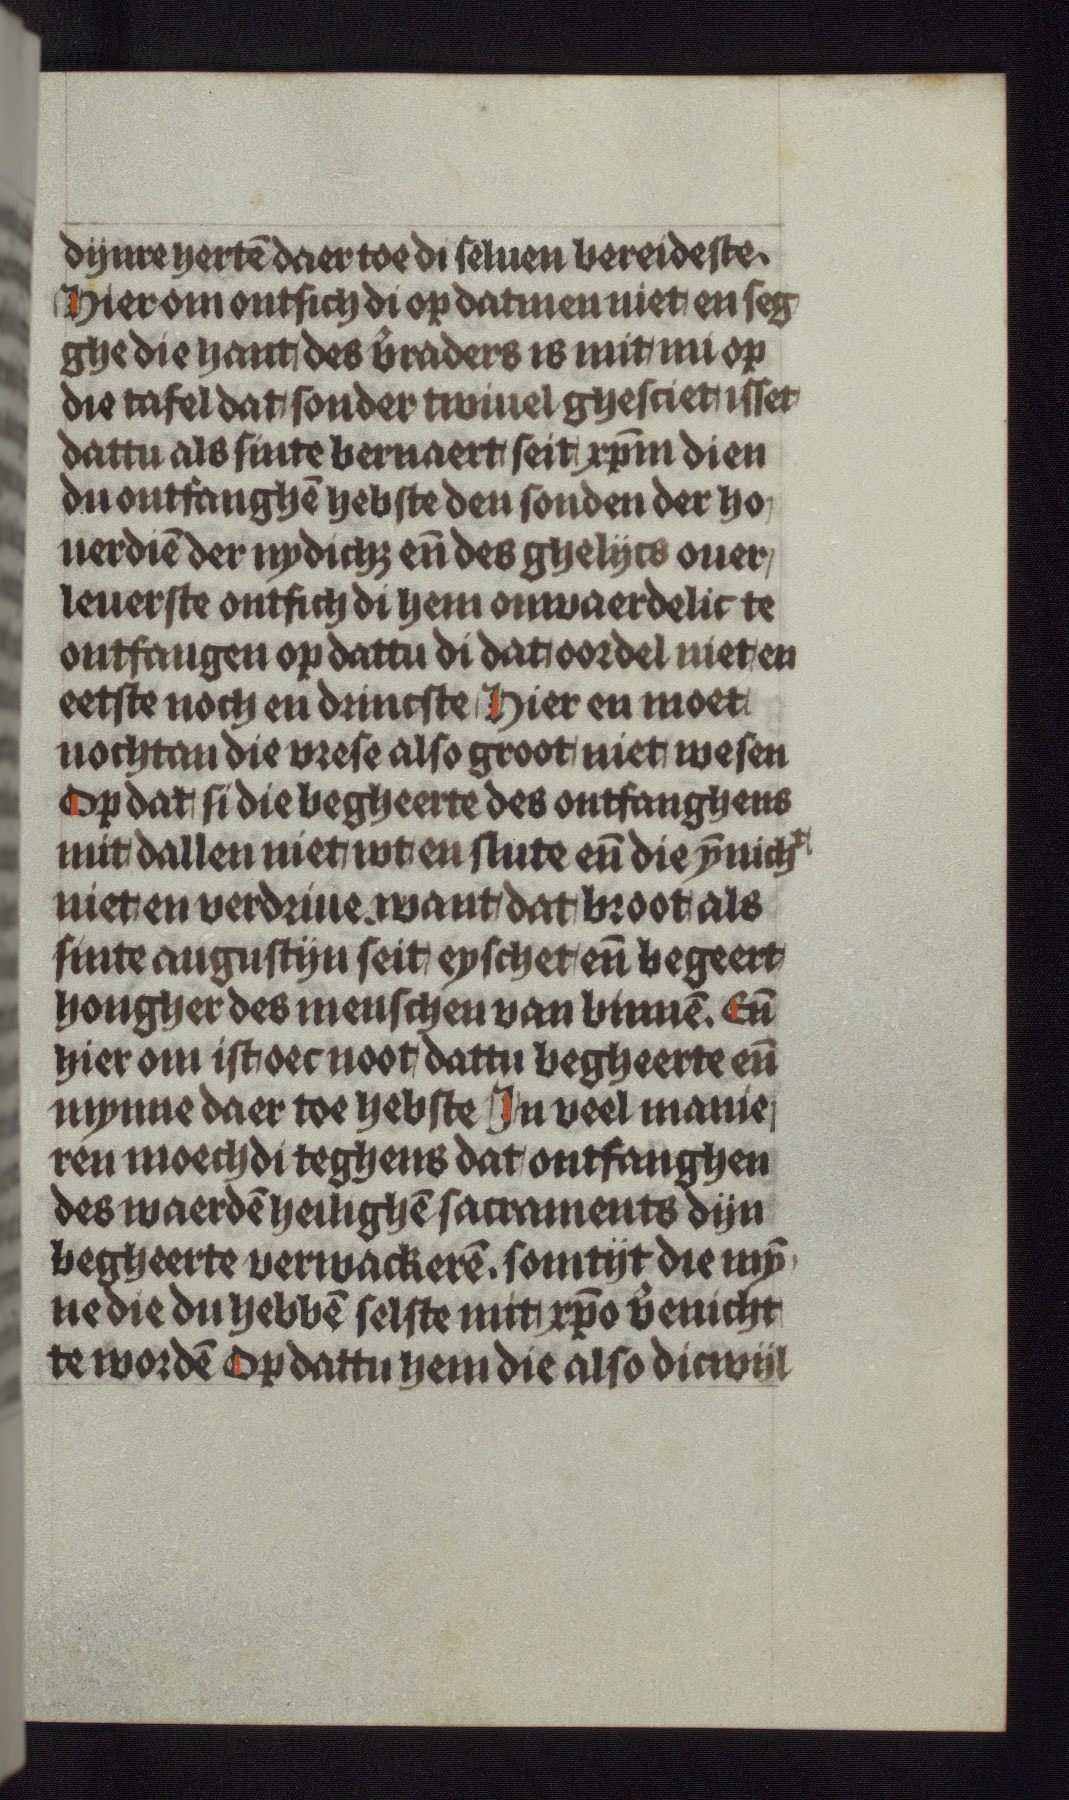 dijnre hertē daer toe di seluen bereideste.
Hier om ontsich di op datmen niet en seg
ghe die hant des v̉raders is mit mi op
die tafel dat sonder twiuel ghesciet isset
dattu als sinte bernaert seit xp̄m dien
du ontfanghē hebste den sonden der ho
uerdiē der nydich₃ en̄ des ghelijcs ouer
leuerste ontsich di hem onwaerdelic te
ontfangen op dattu di dat oordel niet en
eetste noch en drincste Hier en moet
nochtan die vrese also groot niet wesen
Op dat si die begheerte des ontfanghens
mit dallen niet wt en slute en̄ die ȳnichᵗ
niet en verdriue. want dat broot als
sinte augustijn seit eyschet en̄ begeert
hongher des menschen van binnē. En̄
hier om ist oec noot dattu begheerte en̄
mynne daer toe hebste In veel manie
ren moechdi teghens dat ontfanghen
des waerdē heilighē sacraments dijn
begheerte verwackerē. somtijt die mȳ
ne die du hebbē selste mit xp̄o v̉enicht
te wordē Op dattu hem die also dicwijl